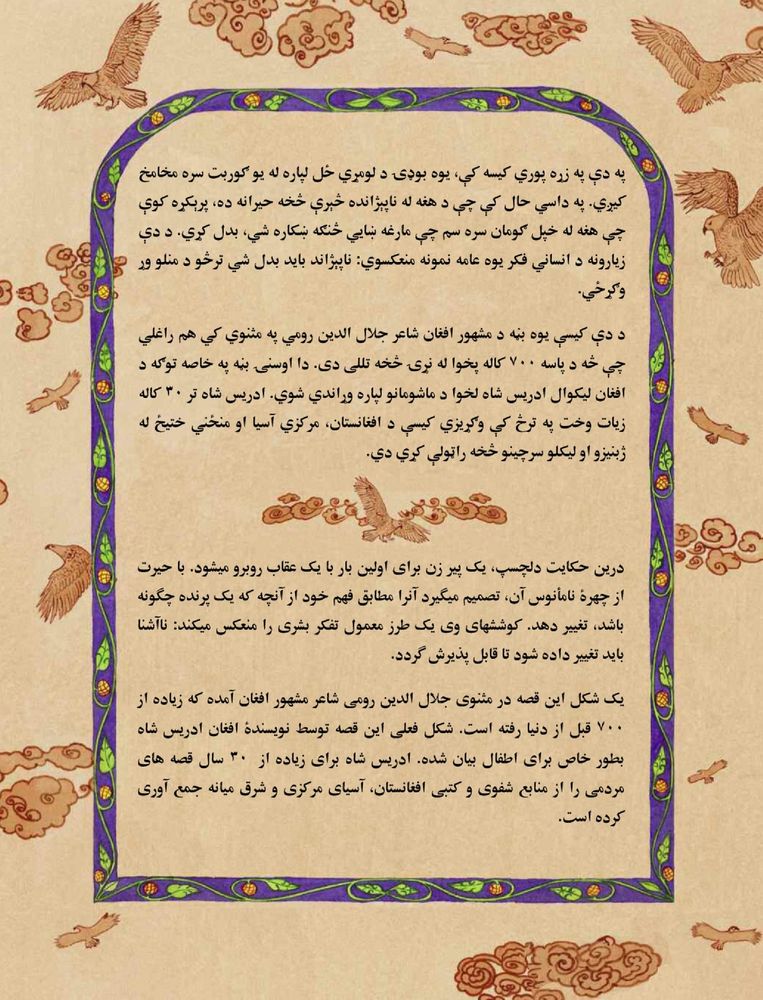 په دې په زړه پورې کیسه کې، یوه بوډۍ د لومړي ځل لپاره له یو ګوربت سره مخامخ
کیږي. په داسې حال کې چې د هغه له ناپېژانده څېرې څخه حیرانه ده، پرېکړه کوي
چې هغه له خپل ګومان سره سم چې مارغه ښایي څنګه ښکاره شي، بدل کړي. د دې
زیارونه د انساني فکر یوه عامه نمونه منعکسوي: ناپېژاند باید بدل شي ترڅو د منلو وړ
وګرځي.
د دې کیسې یوه بڼه د مشهور افغان شاعر جلال الدین رومي په مثنوي کې هم راغلې
چې څه د پاسه ۷۰۰ کاله پخوا له نړۍ څخه تللی دی. دا اوسنۍ بڼه په خاصه توګه د
افغان لیکوال ادریس شاه لخوا د ماشومانو لپاره وړاندې شوې. ادریس شاه تر ۳۰ کاله
زیات وخت په ترڅ کې وګړیزې کیسې د افغانستان، مرکزي آسیا او منځني ختیځ له
ژبنیزو او لیکلو سرچینو څخه راټولې کړې دي.
درین حکایت دلچسپ، یک پیر زن برای اولین بار با یک عقاب روبرو میشود. با حیرت
از چهرهٔ نامأنوس آن، تصمیم میگیرد آنرا مطابق فهم خود از آنچه که یک پرنده چگونه
باشد، تغییر دهد. کوششهای وی یک طرز معمول تفکر بشری را منعکس میکند: ناآشنا
باید تغییر داده شود تا قابل پذیرش گردد.
یک شکل این قصه در مثنوی جلال الدین رومی شاعر مشهور افغان آمده که زیاده از
۷۰۰ قبل از دنیا رفته است. شکل فعلی این قصه توسط نویسندهٔ افغان ادریس شاه
بطور خاص برای اطفال بیان شده. ادریس شاه برای زیاده از ۳۰ سال قصه های
مردمی را از منابع شفوی و کتبی افغانستان، آسیای مرکزی و شرق میانه جمع آوری
کرده است.